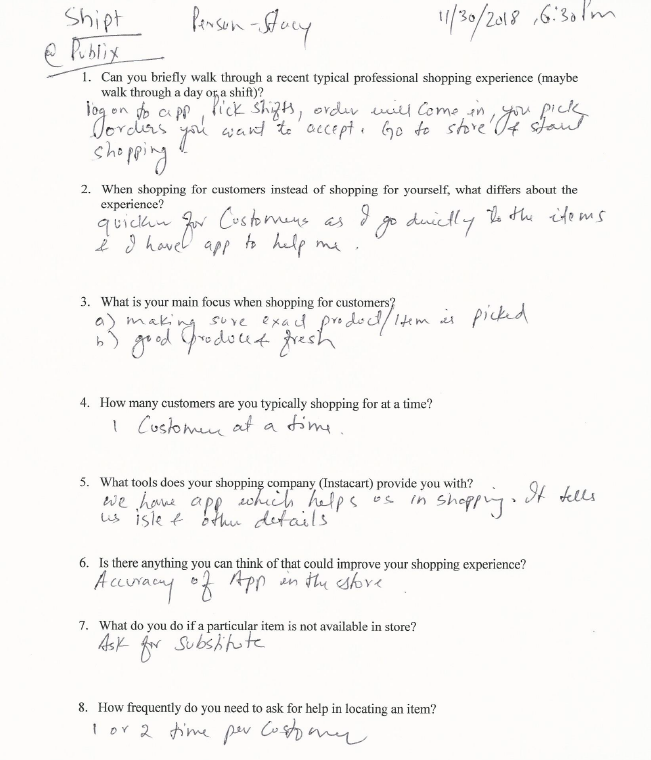 Shipt Person - Stacy 11/30/2018, 6:30 Pm
@ Publix
1. Can you briefly walk through a recent typical professional shopping experience (maybe
walk through a day or a shift)?
log on to app, Pick shifts, order will come in, you pick
orders you want to accept. Go to store & start
shopping
2. When shopping for customers instead of shopping for yourself, what differs about the
experience?
quicker for Customers as I go directly to the items
& I have app to help me.
3. What is your main focus when shopping for customers?
a) making sure exact product/item is picked
b) good produce & fresh
4. How many customers are you typically shopping for at a time?
1 Customer at a time.
5. What tools does your shopping company (Instacart) provide you with?
we have app which helps us in shopping. It tells
us isle & other details
6. Is there anything you can think of that could improve your shopping experience?
Accuracy of App in the store
7. What do you do if a particular item is not available in store?
Ask for substitute
8. How frequently do you need to ask for help in locating an item?
1 or 2 time per customer